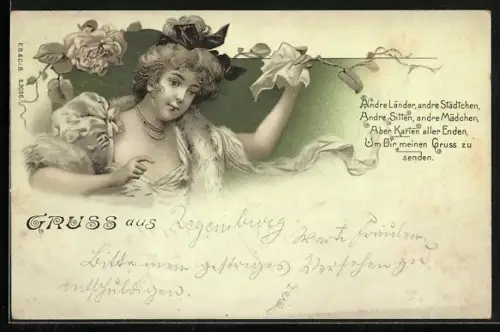 E.B.&C.i.B. S.8016.
Andre Länder, andre Städtchen,
Andre Sitten, andre Mädchen,
Aber Karten aller Enden,
Um Dir meinen Gruss zu
senden.
GRUSS aus Regensburg.
Werte Fräulein.
Bitte mein gestriges Versehen zu
entschuldigen.